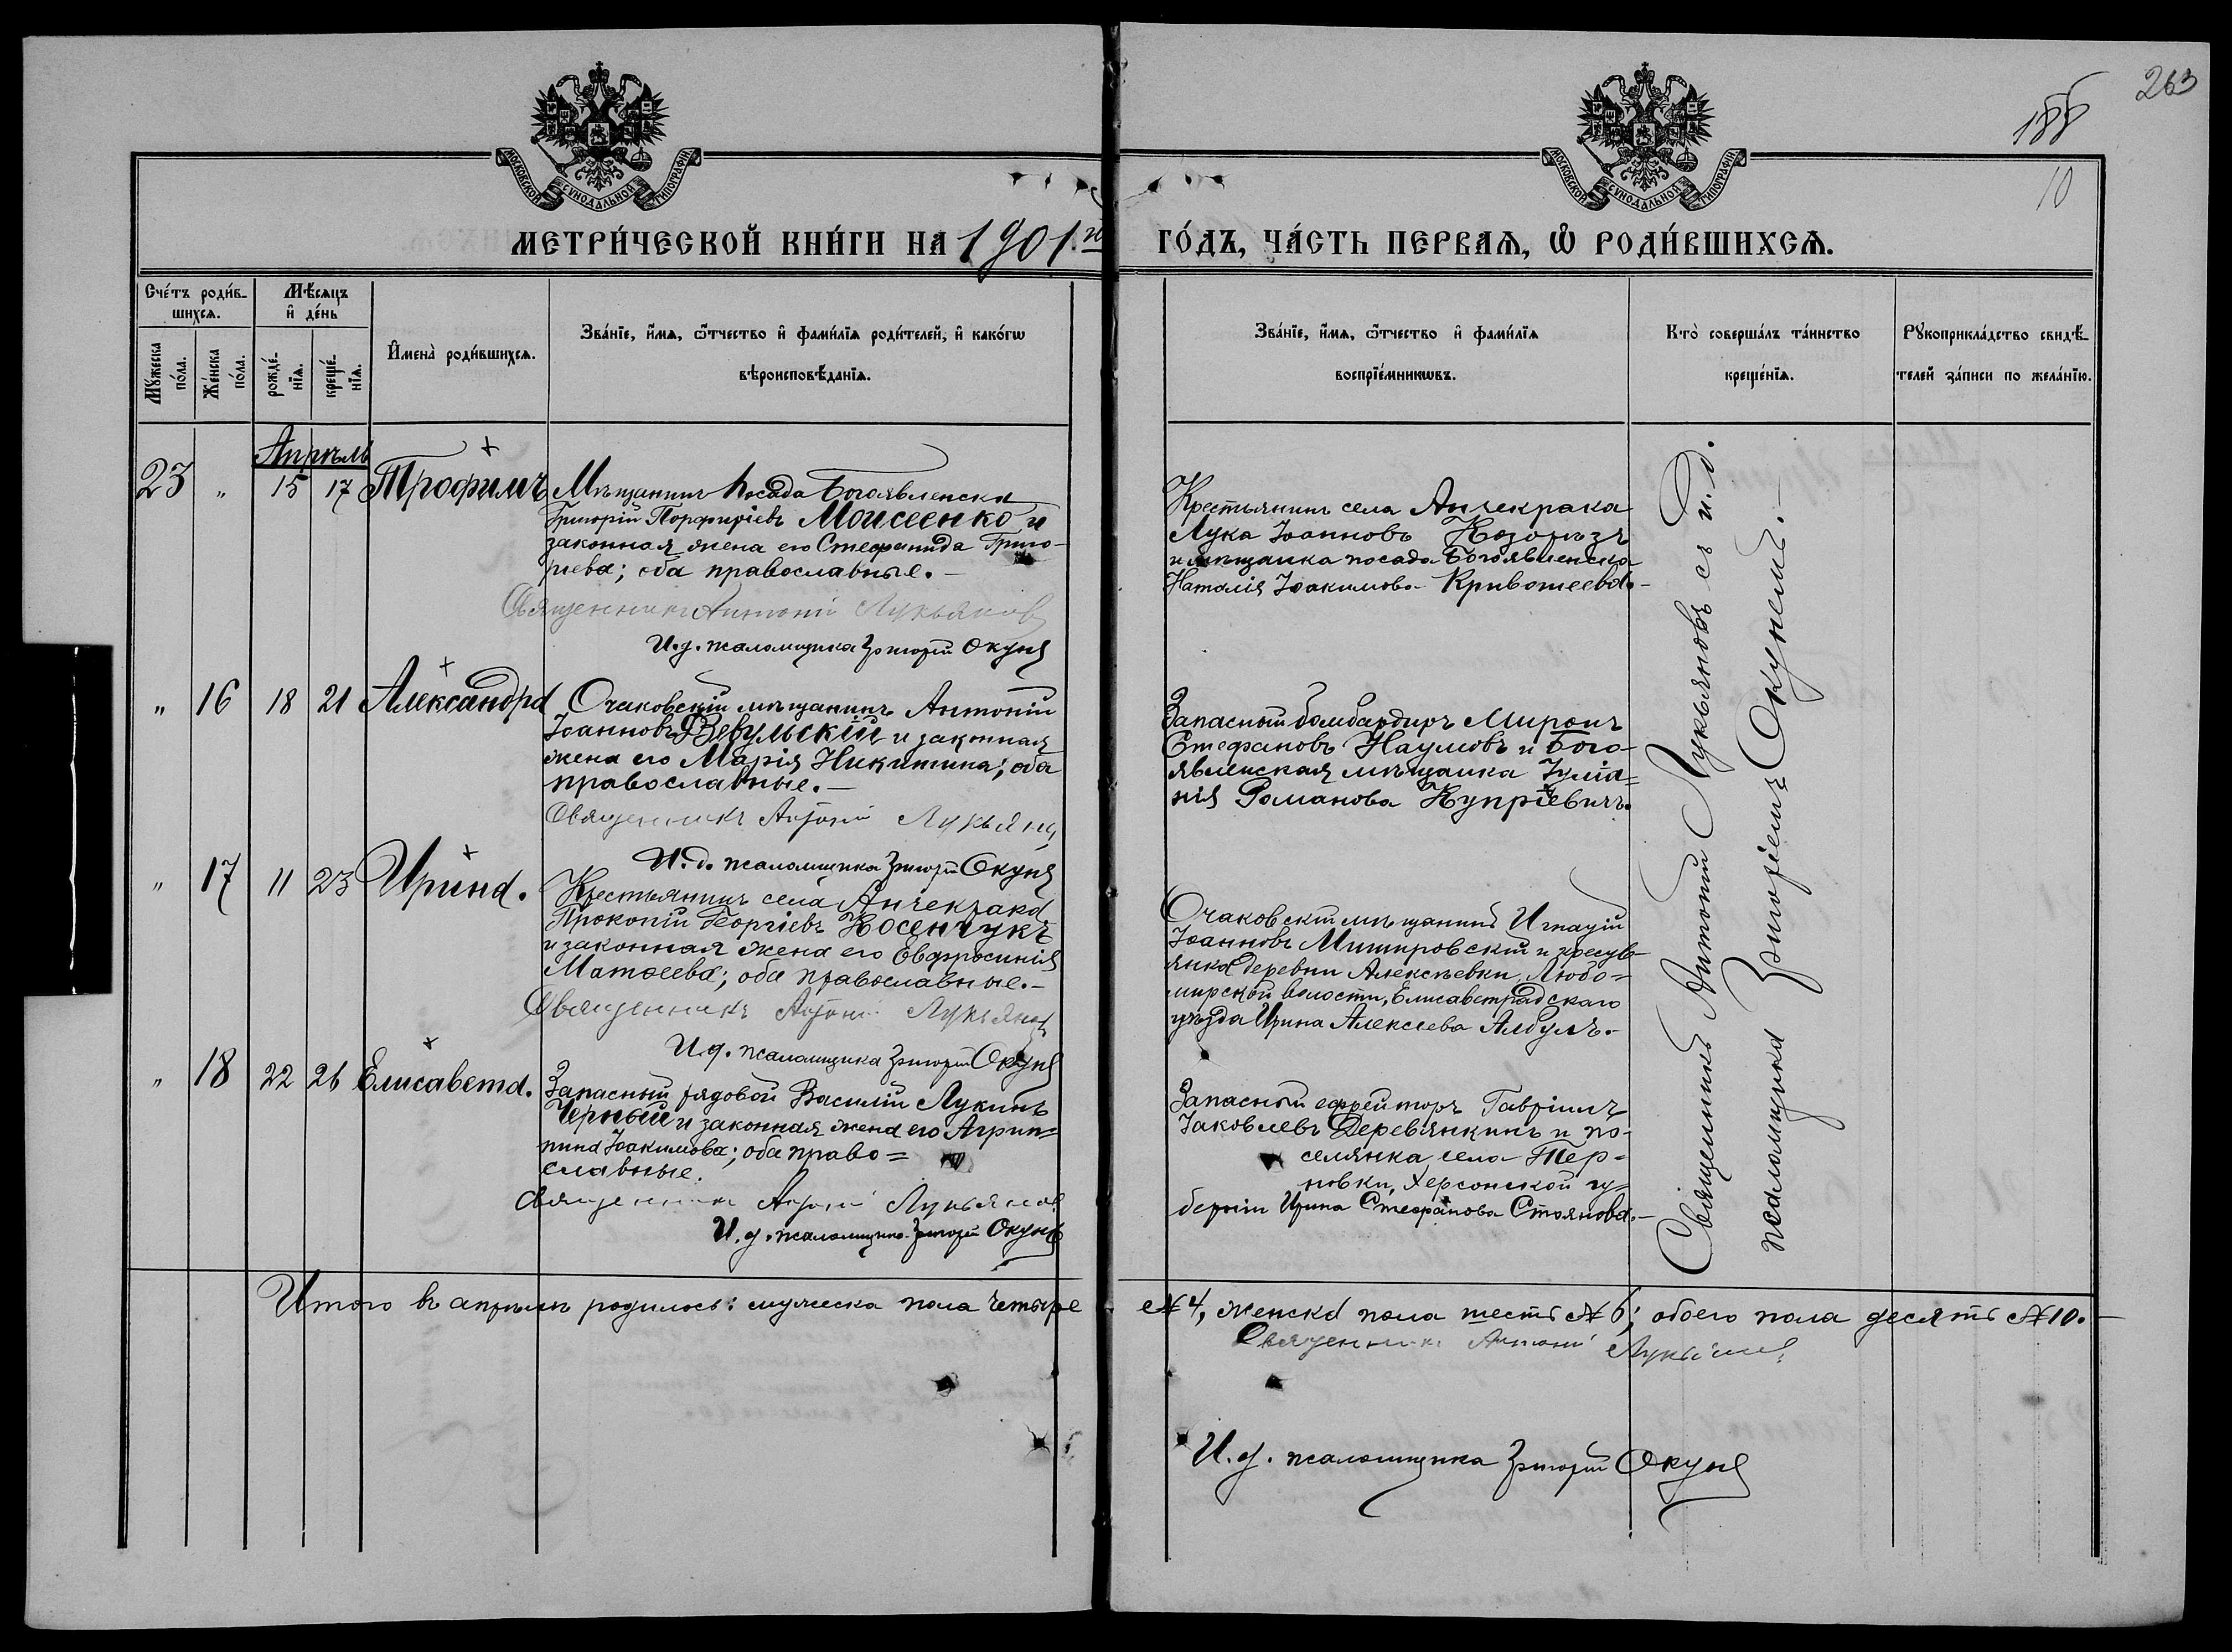 263
188
10
МОСКОВСКОЙ СѴНОДАЛЬНОЙ ТИПОГРАФІИ.
МОСКОВСКОЙ СѴНОДАЛЬНОЙ ТИПОГРАФІИ.
МЕТРИ́ЧЕСКОЙ КНИ́ГИ НА 1901.й ГО́ДЪ, ЧА́СТЬ ПЕРВАѦ, Ѡ҆ РОДИ́ВШИХСѦ.
Сче́тъ роди́в-
шихсѧ.
Мꙋ́жеска по́ла.
Же́нска по́ла.
Мѣ́сѧцъ
и҆ де́нь
рожде́-
нїѧ.
креще́-
нїѧ.
И҆мена̀ роди́вшихсѧ.
Зва́нїе, и҆́мѧ, ѻ҆́тчество и҆ фами́лїѧ роди́телей, и҆ како́гѡ
вѣроисповѣ́данїѧ.
Зва́нїе, и҆́мѧ, ѻ҆́тчество и҆ фами́лїѧ
воспрїе́мникѡвъ.
Кто̀ соверша́лъ та́инство
креще́нїѧ.
Рꙋкоприкла́дство свидѣ́-
телей за́писи по жела́нїю.
Апрѣль
23 " 15 17 Трофимъ
Мѣщанинъ посада Богоявленска
Григорій Порфиріевъ Моисеенко и
законная жена его Стефанида Григо-
рьева; оба православные.-
Священникъ Антоній Лукьяновъ
И.д. псаломщика Григорій Окунь
Крестьянинъ села Анчекрака
Лука Іоанновъ Козорѣзъ
и мѣщанка посада Богоявленска
Наталія Іоакимова Кривошеева.-
" 16 18 21 Александра
Очаковскій мѣщанинъ Антоній
Іоанновъ Вевульскій и законная
жена его Марія Никитина; оба
православные.-
Священникъ Антоній Лукьяновъ
И.д. псаломщика Григорій Окунь
Запасный бомбардиръ Миронъ
Стефановъ Наумовъ и Бого-
явленская мѣщанка Іуліа=
нія Романова Купріевичъ.
" 17 11 23 Ирина.
Крестьянинъ села Анчекрака
Прокопій Георгіевъ Косенчукъ
и законная жена его Евфросинія
Матѳеева; оба православные.-
Священникъ Антоній Лукьяновъ
И.д. псаломщика Григорій Окунь
Очаковскій мѣщанинъ Игнатій
Іоанновъ Мишировскій и кресть-
янка деревни Алексѣевки, Любо=
мирской волости, Елисаветградскаго
уѣзда Ирина Алексѣева Албулъ.-
" 18 22 26 Елисавета.
Запасный рядовой Василій Лукинъ
Черный и законная жена его Агрип=
пина Іоакимова; оба право=
славные.
Священникъ Антоній Лукьяновъ
И.д. псаломщика Григорій Окунь
Запасный ефрейторъ Гавріилъ
Іаковлевъ Деревянкинъ и по-
селянка села Тер-
новки, Херсонской гу=
берніи Ирина Стефанова Стоянова.-
Священникъ Антоній Лукьяновъ съ и.д.
псаломщика Григоріемъ Окунемъ.-
Итого въ апрѣлѣ родилось: мужеска пола четыре № 4, женска пола шесть № 6; обоего пола десять № 10.-
Священникъ Антоній Лукьяновъ
И.д. псаломщика Григорій Окунь